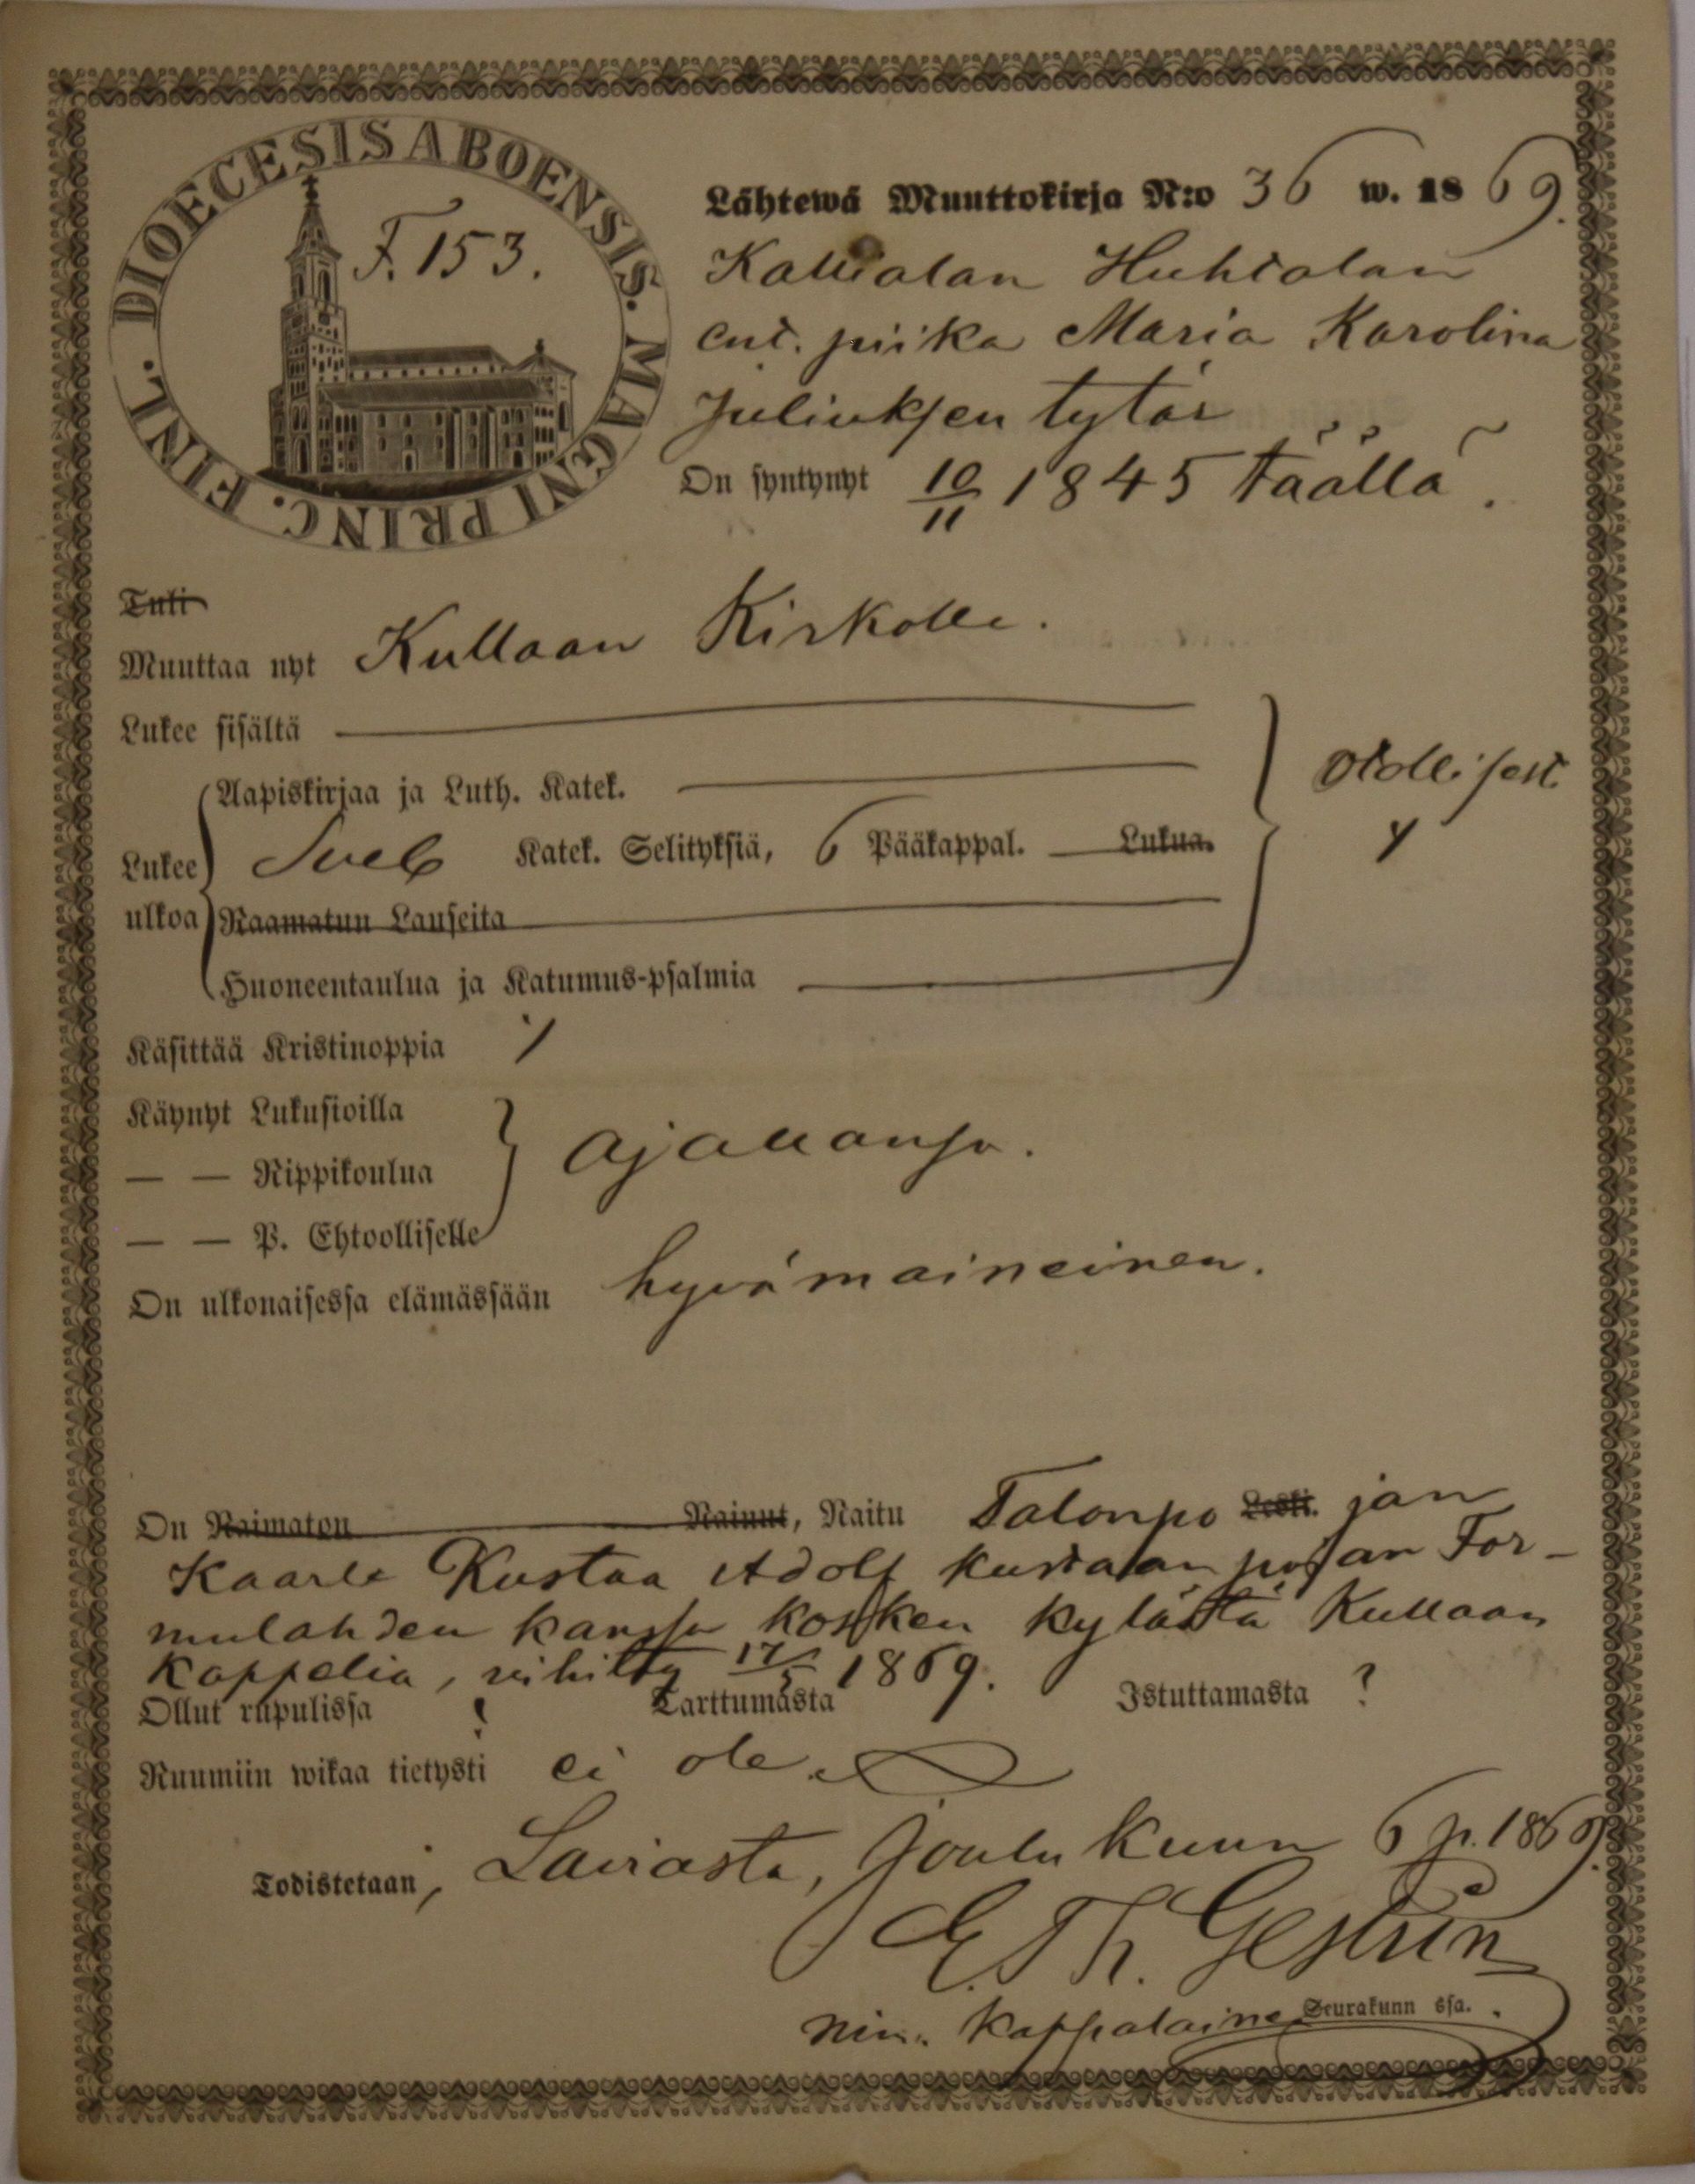 DIOECESIS ABOENSIS. MAGNI PRINC. FINL.
F. 153.
Lähtewä Muuttokirja N:o 36 w. 1869.
Kallialan Huhtalan
ent. piika Maria Karolina
Juliuksen tytär
On syntynyt 10/11 1845 täällä.
Tuli
Muuttaa nyt Kullaan Kirkolle.
Lukee sisältä
Aapiskirjaa ja Luth. Katek.
otollisest.
Lukee Sveb Katek. Selityksiä, 6 Pääkappal. Lukua.
ulkoa Raamatun Lauseita
Huoneentaulua ja Katumus-psalmia
Käsittää Kristinoppia
Käynyt Lukusioilla
— — Rippikoulua ajallansa.
— — P. Ehtoolliselle
On ulkonaisessa elämässään hyvämaineinen.
On Naimaton Nainut, Naitu Talonpo Leski. jan
Kaarle Kustaa Adolf Kustaan pojan For-
mulahden kanssa Kosken kylästä Kullaan
Kappelia, vihitty 17/5 1869.
Ollut rupulissa ? Tarttumasta Istuttamasta ?
Ruumiin wikaa tietysti ei ole.
Todistetaan, Laviasta, Joulukuun 6 p. 1869.
E. Th. Gestrin
Kappalainen Seurakunn ssa.